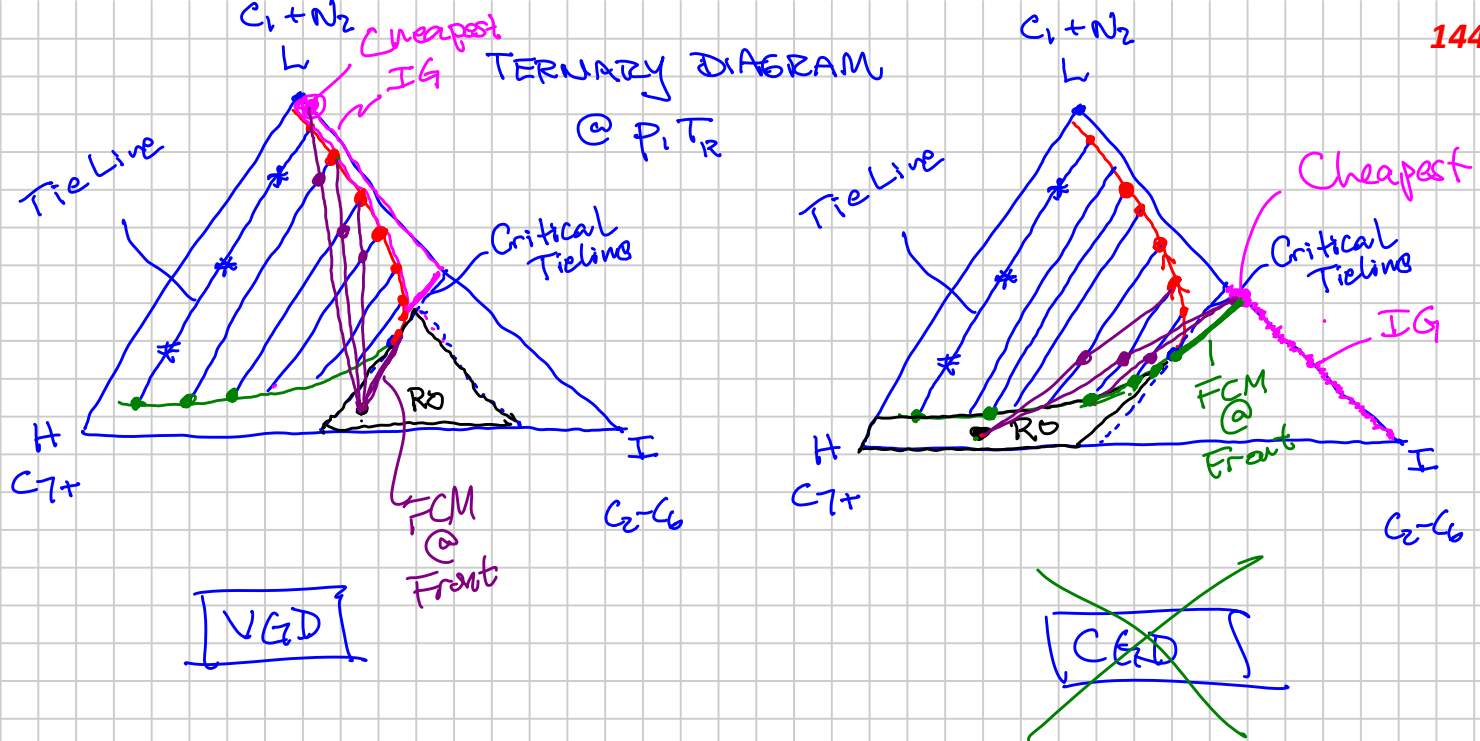 C₁+N₂
L
Cheapest
IG
TERNARY DIAGRAM
@ p, T_R
Tie Line
Critical
Tieline
H
C7+
RO
I
C₂-C₆
FCM
@
Front
VGD
C₁+N₂
L
144
Tie Line
Cheapest
Critical
Tieline
IG
FCM
@
Front
H
C7+
RO
I
C₂-C₆
CGD